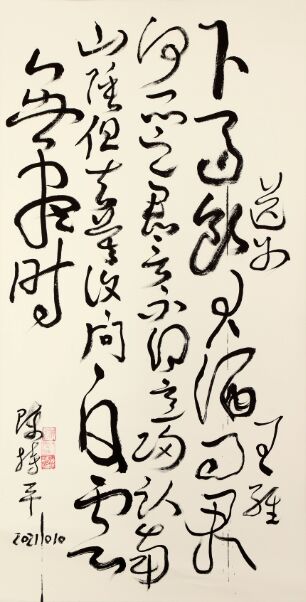 送别
王维
下马饮君酒问君
何所之君言不得意归卧南
山陲但去莫复问白云
無盡时